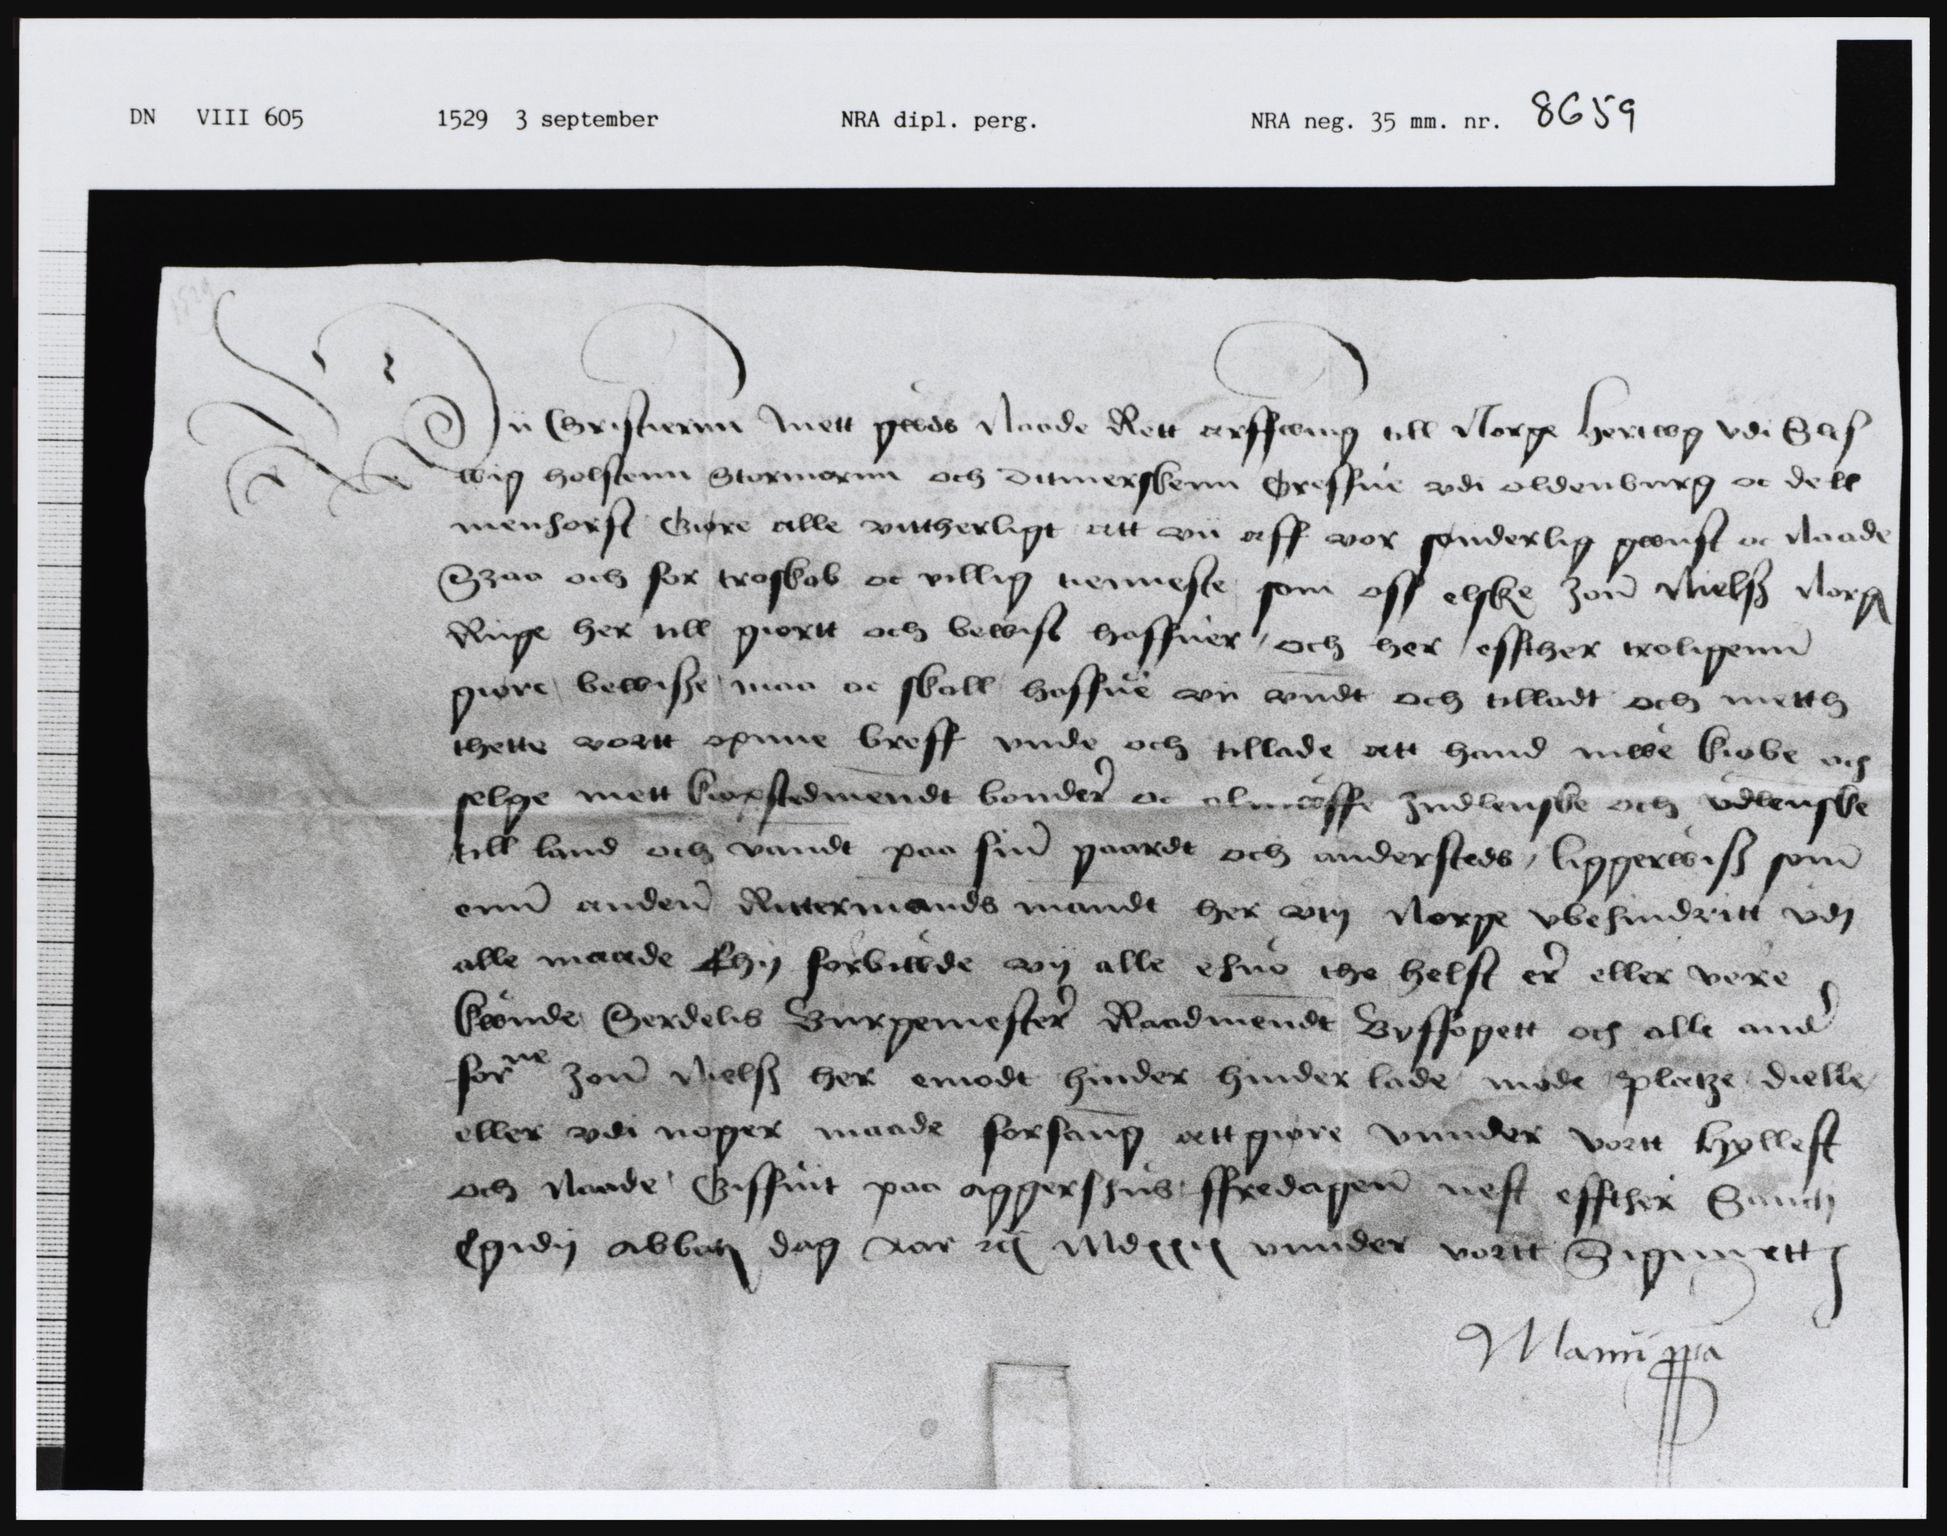 DN VIII 605 1529 3 september NRA dipl. perg. NRA neg. 35 mm. nr. 8659
1529
Wii Christiernn mett gwds Naade Rett arffwing till Norge hertwg vdi Sles
wig holstenn Stormarnn och Ditmerskenn Greffue vdi oldenburg oc dell
menhorst Giøre alle vittherligt att vii aff vor sønderlig gwnst oc Naade
Szaa och for troskab oc villig tienneste som oss elske Jon Nielss Norg
Riige her till giortt och bewist haffuer / och her effther troligenn
giøre bewisse maa oc skall haffue vii vndt och tilladt och metth
thette vortt opnne breff vnde och tillade att hand mwe kiøbe och
selge mett kiøpstedmendt bønder oc almwffe Indlenske och vdlenske
till land och vandt paa sin gaardt och andersteds / liggerwiss som
enn anden Rittermands mandt her vtij Norge vbehindritt vdj
alle maade Thij forbiwde vij alle ehuo the helst er eller vere
kwnde Serdelis Burgemester Raadmendt Byffogett och alle and
forne Jon Nielss her emodt hinder hinder lade møde platze dielle
eller vdi noger maade forfang att giøre vnnder vortt hyllest
och Naade Giffuit paa aggershus ffredagen nest effther Sancti
Egidij abbatis dag Aar rc Mdxxix vnnder vortt Signett
Manu ppa